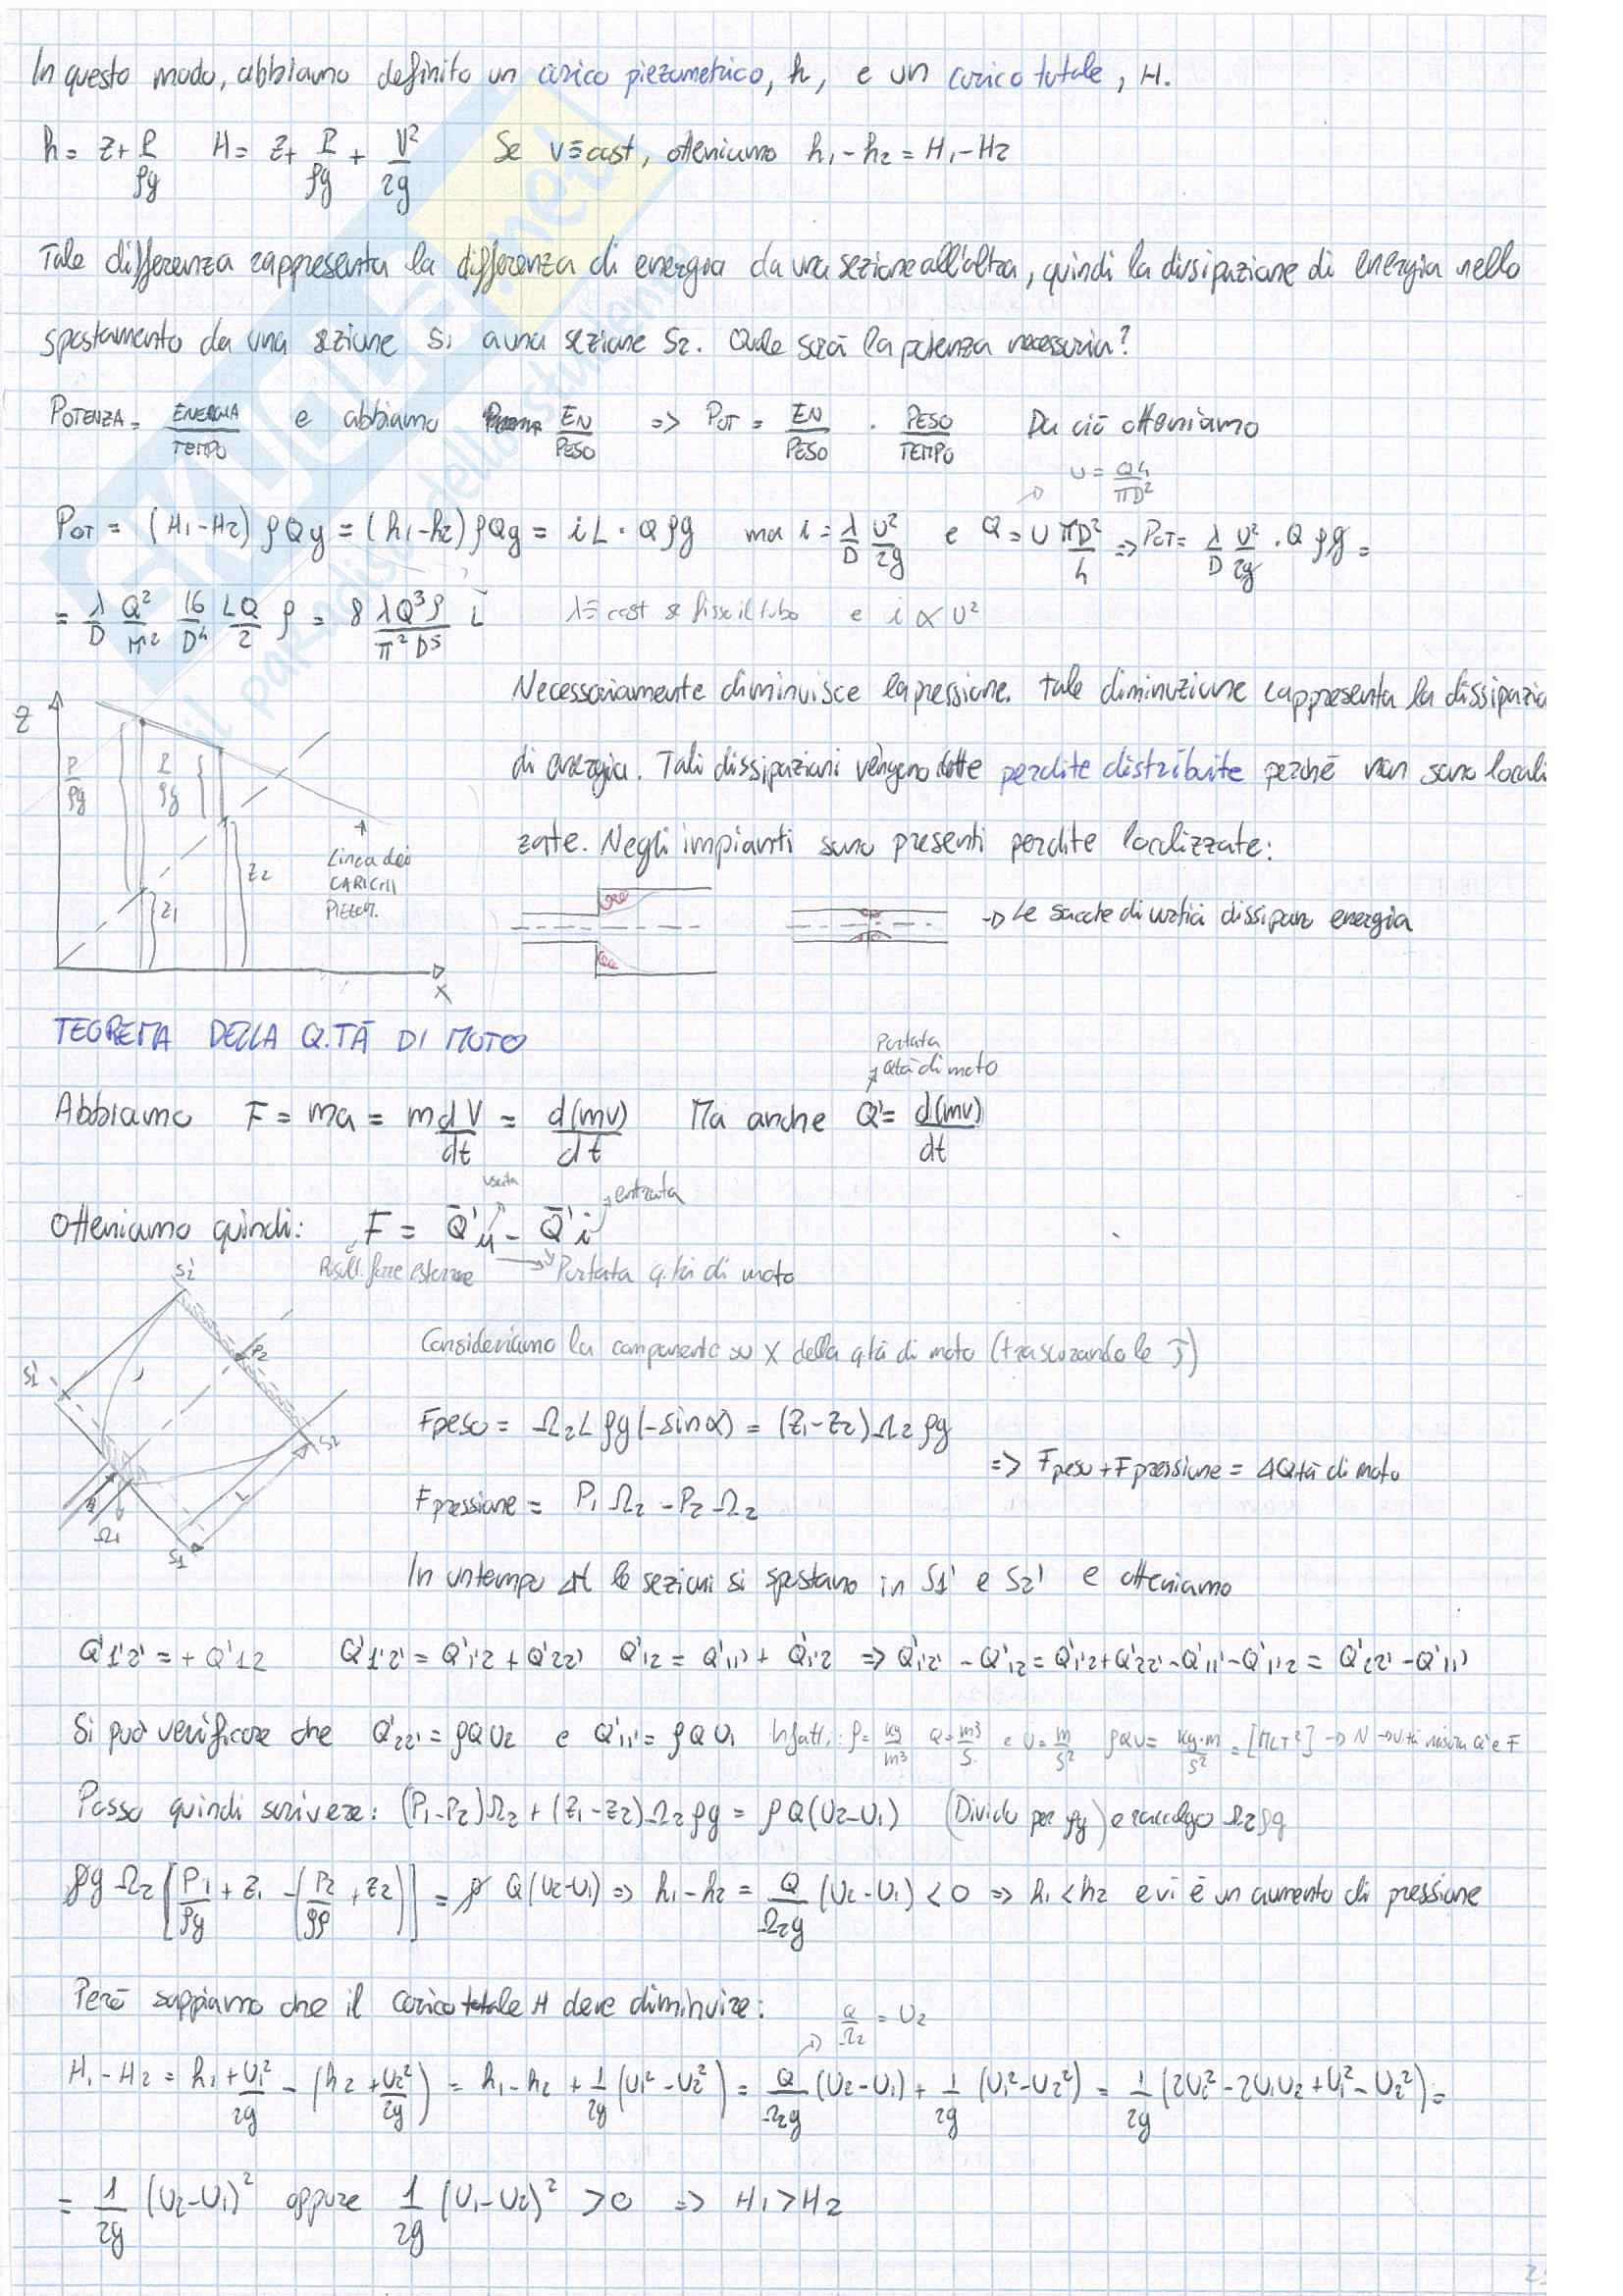 In questo modo, abbiamo definito un carico piezometrico, h, e un carico totale, H.
h = z + P/ρg   H = z + P/ρg + V²/2g   Se v≡cost, otteniamo h₁-h₂ = H₁-H₂
Tale differenza rappresenta la differenza di energia da una sezione all'altra, quindi la dissipazione di energia nello
spostamento da una sezione S₁ a una sezione S₂. Quale sarà la potenza necessaria?
POTENZA = ENERGIA/TEMPO e abbiamo EN/PESO => POT = EN/PESO · PESO/TEMPO Da ciò otteniamo
U = Q4/πD²
POT = (H₁-H₂) ρQg = (h₁-h₂) ρQg = iL · Qρg ma i = λ/D U²/2g e Q = U πD²/4 => POT = λ/D U²/2g · Qρg =
= λ/D Q²/π² 16/D⁴ LQ/2 ρ = 8 λQ³ρ/π²D⁵ L   λ≡cost se fisso il tubo e i ∝ U²
Necessariamente diminuisce la pressione. Tale diminuzione rappresenta la dissipazio
di energia. Tali dissipazioni vengono dette perdite distribuite perchè non sono locali
zate. Negli impianti sono presenti perdite localizzate:
Z
P/ρg
P/ρg
Z₁
Z₂
Linea dei
CARICHI
PIEZOM.
X
→ Le sacche di vortici dissipano energia
TEOREMA DELLA Q.TÀ DI MOTO
Portata
qtà di moto
Abbiamo F = ma = m dV/dt = d(mv)/dt Ma anche Q' = d(mv)/dt
uscita
entrata
Otteniamo quindi: F = Q̄'u - Q̄'i
Risult. forze esterne → Portata q.tà di moto
S₂'
S₁'
P₂
S₂
L
Ω₁
S₁
Consideriamo la componente su X della q.tà di moto (trascurando le τ)
Fpeso = Ω₂Lρg(-sinα) = (Z₁-Z₂)Ω₂ρg
=> Fpeso + Fpressione = ΔQ.tà di moto
Fpressione = P₁Ω₂ - P₂Ω₂
In un tempo Δt le sezioni si spostano in S1' e S2' e otteniamo
Q'1'2' = + Q'12   Q'1'2' = Q'1'2 + Q'22'   Q'12 = Q'11' + Q'1'2 => Q'1'2' - Q'12 = Q'1'2 + Q'22' - Q'11' - Q'1'2 = Q'22' - Q'11'
Si può verificare che Q'22' = ρQU₂ e Q'11' = ρQU₁ Infatti: ρ = kg/m³ Q = m³/s e U = m/s² ρQU = kg·m/s² = [MLT⁻²] → N → Utà misura Q' e F
Posso quindi scrivere: (P₁-P₂)Ω₂ + (Z₁-Z₂)Ω₂ρg = ρQ(U₂-U₁) (Divido per ρg) e raccolgo Ω₂ρg
ρgΩ₂[P₁/ρg + Z₁ - (P₂/gρ + Z₂)] = ρQ(U₂-U₁) => h₁-h₂ = Q/Ω₂g (U₂-U₁) < 0 => h₁<h₂ e vi è un aumento di pressione
Però sappiamo che il carico totale H deve diminuire:
Q/Ω₂ = U₂
H₁-H₂ = h₁ + U₁²/2g - (h₂ + U₂²/2g) = h₁-h₂ + 1/2g (U₁²-U₂²) = Q/Ω₂g (U₂-U₁) + 1/2g (U₁²-U₂²) = 1/2g (2U₂²-2U₁U₂+U₁²-U₂²) =
= 1/2g (U₂-U₁)² oppure 1/2g (U₁-U₂)² > 0 => H₁>H₂